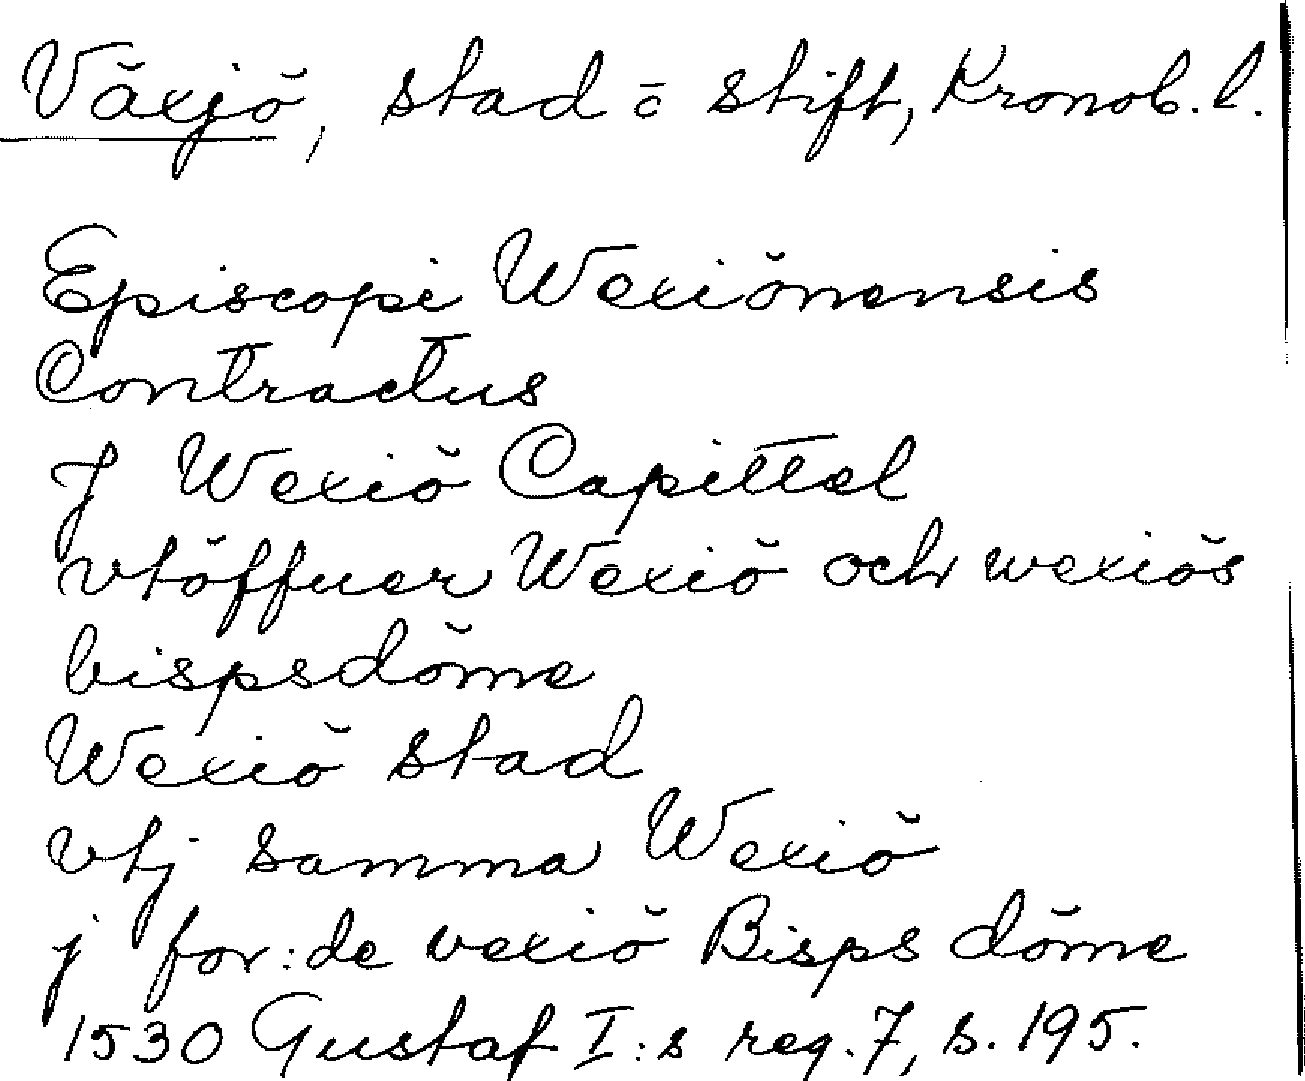 Växjö, stad o stift, Kronob. l.
Episcopi Wexiönensis
Contractus
J Wexiö Capittel
vtöffuer Wexiö och wexiös
bispsdöme
Wexiö stad
vtj samma Wexiö
j for:de vexiö Bisps döme
1530 Gustaf I:s reg. 7, s. 195.